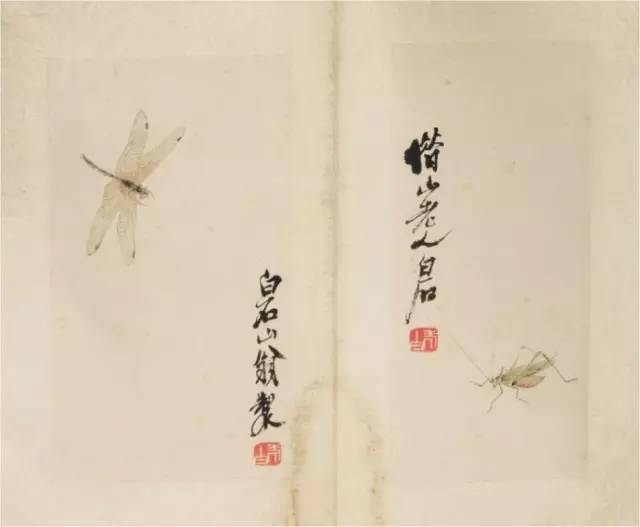 借山老人白石
白石山翁製